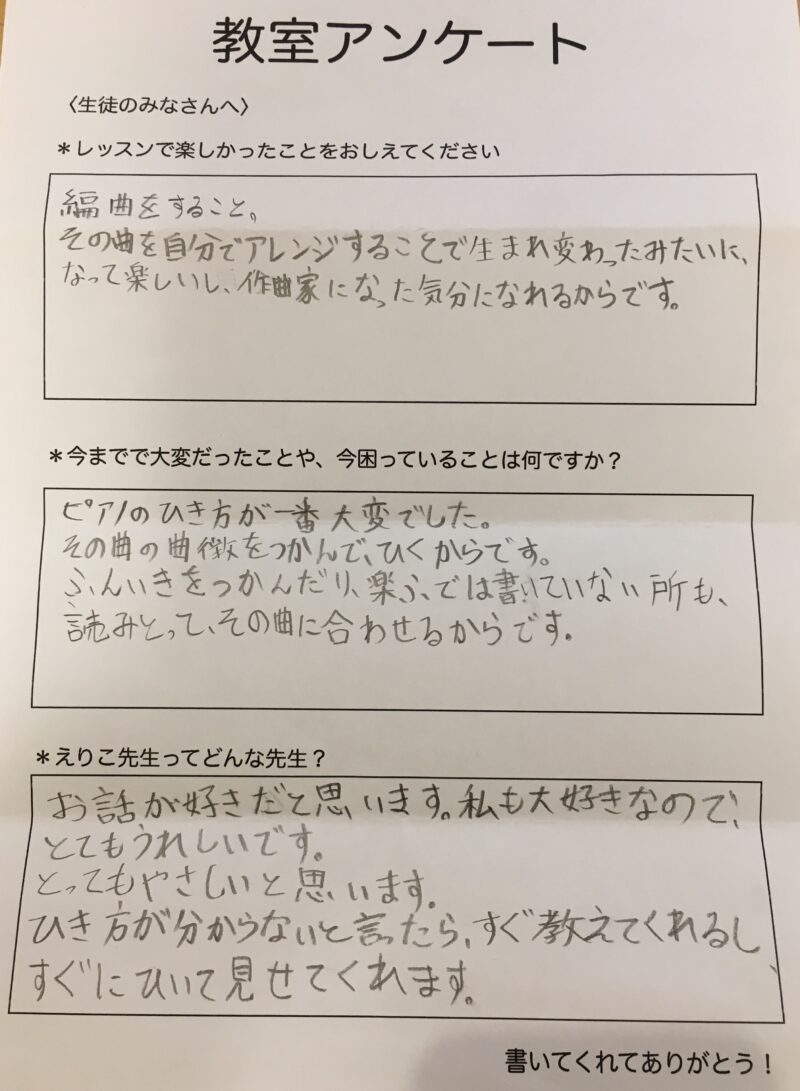 教室アンケート
〈生徒のみなさんへ〉
＊レッスンで楽しかったことをおしえてください
編曲をすること。
その曲を自分でアレンジすることで生まれ変わったみたいに、
なって楽しいし、作曲家になった気分になれるからです。
＊今までで大変だったことや、今困っていることは何ですか？
ピアノのひき方が一番大変でした。
その曲の曲徴をつかんで、ひくからです。
ふんいきをつかんだり、楽ふでは書いていない所も、
読みとって、その曲に合わせるからです。
＊えりこ先生ってどんな先生？
お話が好きだと思います。私も大好きなので、
とてもうれしいです。
とってもやさしいと思います。
ひき方が分からないと言ったら、すぐ教えてくれるし、
すぐにひいて見せてくれます。
書いてくれてありがとう！